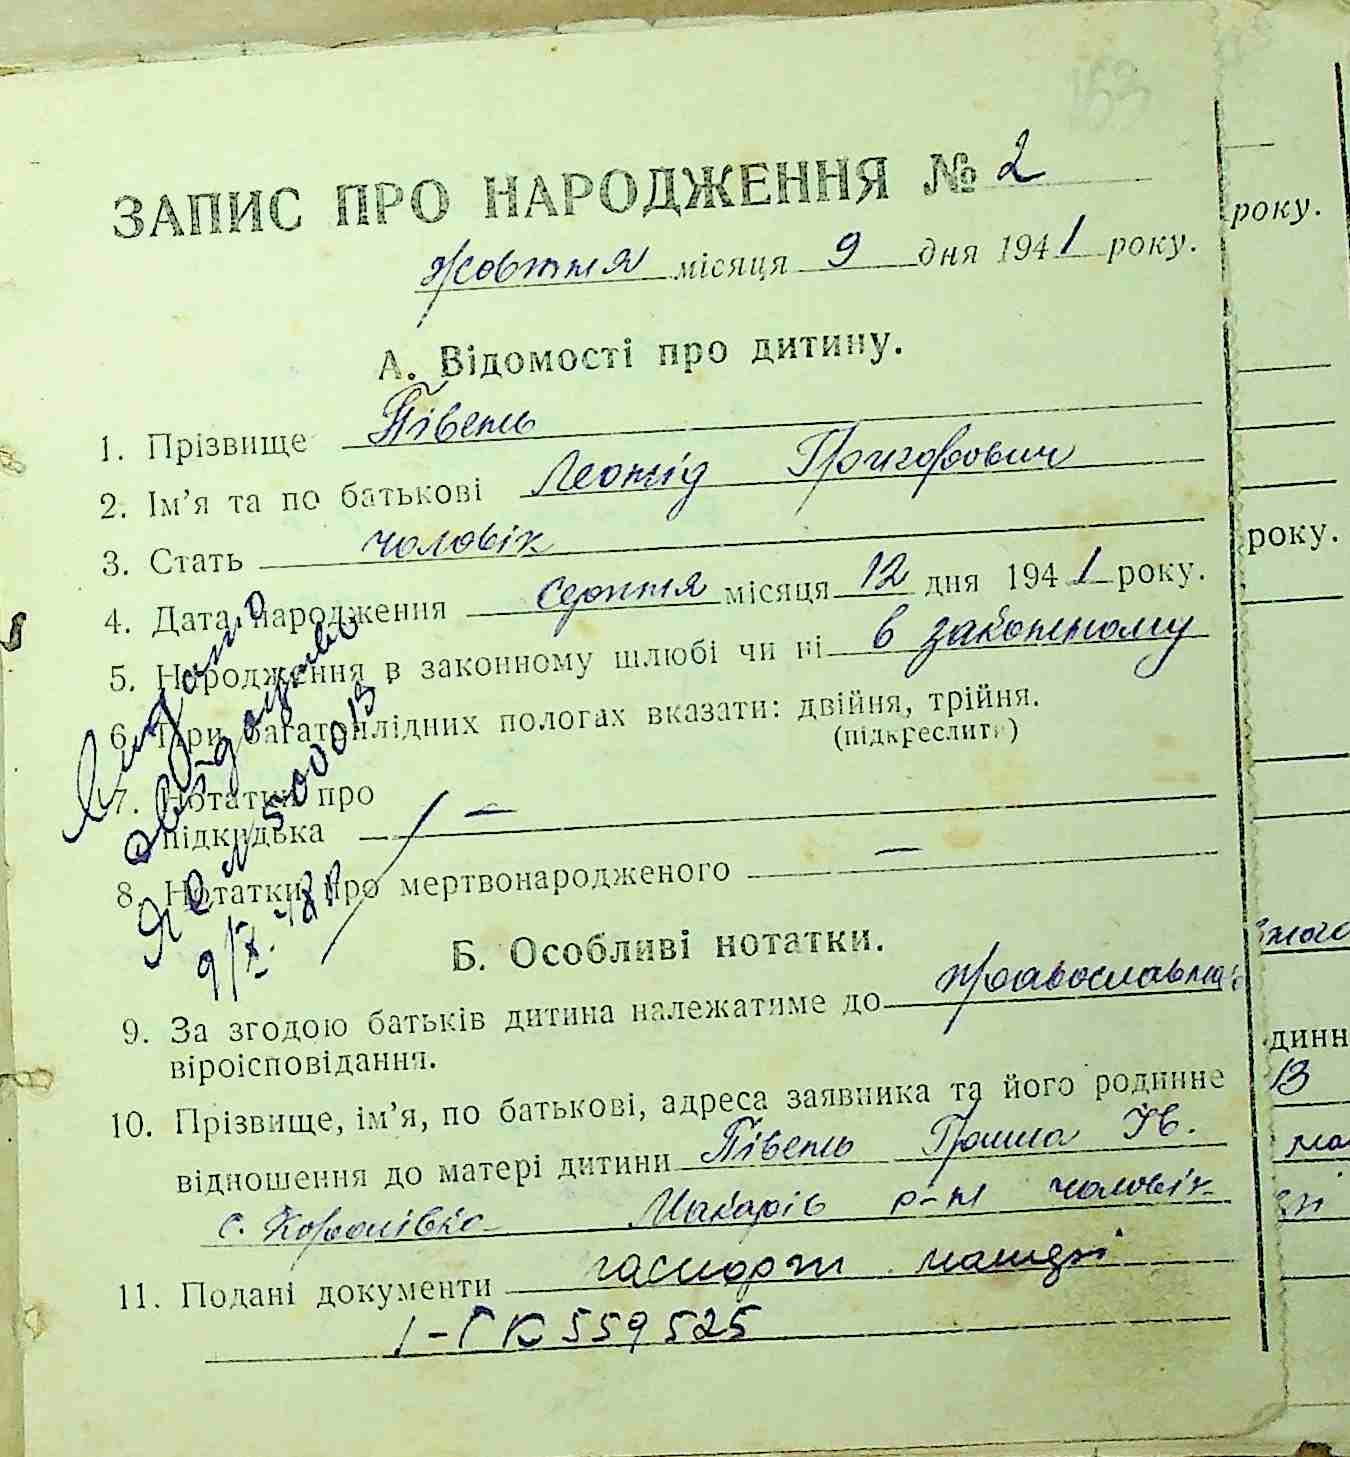 153
ЗАПИС ПРО НАРОДЖЕННЯ № 2
жовтня місяця 9 дня 1941 року.
А. Відомості про дитину.
1. Прізвище Півень
2. Ім'я та по батькові Леонід Григорович
3. Стать чоловік
4. Дата народження серпня місяця 12 дня 1941 року.
5. Народження в законному шлюбі чи ні в законному
6. При багатоплідних пологах вказати: двійня, трійня.
(підкреслити)
7. Нотатки про
підкидька —
8. Нотатки про мертвонародженого —
Б. Особливі нотатки.
9. За згодою батьків дитина належатиме до православна
віроісповідання.
10. Прізвище, ім'я, по батькові, адреса заявника та його родинне
відношення до матері дитини Півень Гриша Ів.
с. Королівка Макарів р-н чоловік
11. Подані документи паспорт
І-ГК 559525
Видано
року.
року.
зного
динн
13